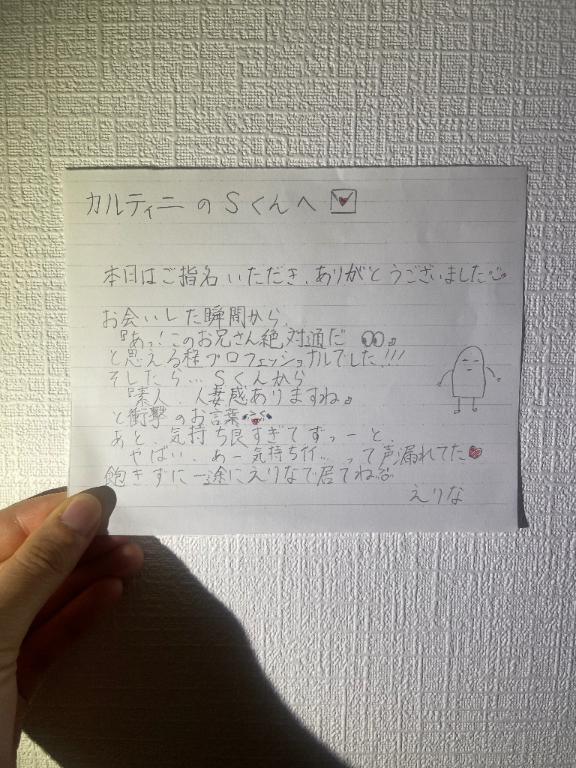 カルティニのSくんへ
本日はご指名いただき、ありがとうございました
お会いした瞬間から、
『あっ!このお兄さん絶対通だ
と思える程プロフェッショナルでした!!!
そしたら…Sくんから
『素人、人妻感ありますね』
と衝撃のお言葉
あと、気持ち良すぎてずっーと、
やばい、あー気持ちイイ…って声漏れてた
飽きずに一途にえりなで居てね
えりな